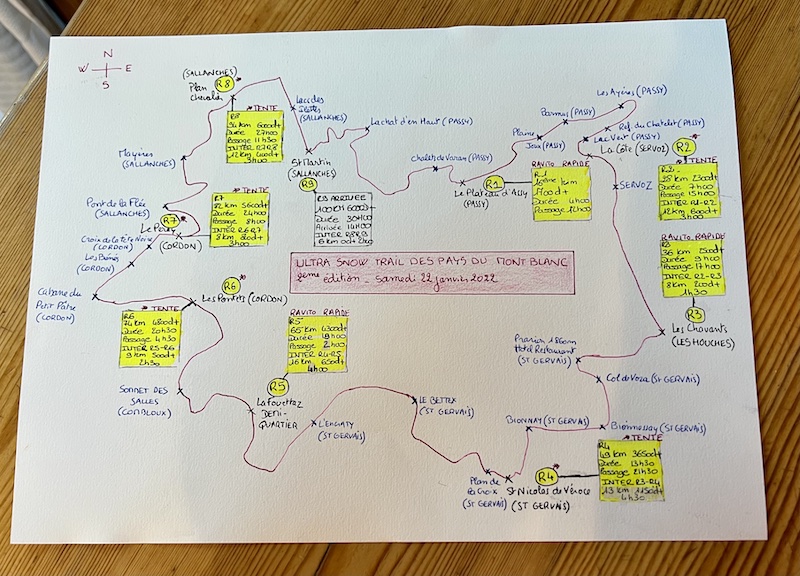 N
W
E
S
(SALLANCHES)
Plan
Chevalier
R8
* TENTE
R8
94 km 6000d+
Durée 27h00
Passage 11h30
INTER R7R8
12 km 400d+
3h00
Lac des
Ilettes
(SALLANCHES)
St Martin
(SALLANCHES)
R9
R9 ARRIVEE
100 KM 6000D+
Durée 30h00
Arrivée 14h00
INTER R8R9
6 km 0d+ 2h00
Lachat d'en Haut (PASSY)
Chalets de Varan (PASSY)
Le Plateau d'Assy
(PASSY)
R1
RAVITO RAPIDE
R1
1700d+
Durée 4h00
Passage 12h00
Plaine
Joux (PASSY)
Barmus (PASSY)
Les Ayères (PASSY)
Ref. du Chatelet (PASSY)
Lac Vert (PASSY)
La Côte (SERVOZ)
R2
* TENTE
R2
28 km 2300d+
Durée 7h00
Passage 15h00
INTER R1-R2
12 km 600d+
3h00
SERVOZ
RAVITO RAPIDE
R3
36 km 2500d+
Durée 9h00
Passage 17h00
INTER R2-R3
8 km 200d+
1h30
R3
Les Chavants
(LES HOUCHES)
Prarion 1860m
Hôtel Restaurant
(ST GERVAIS)
Col de Voza (ST GERVAIS)
Bionnassay (ST GERVAIS)
BIONNAY (ST GERVAIS)
* TENTE
R4
49 km 3650d+
Durée 13h30
Passage 21h30
INTER R3-R4
13 km 1150d+
4h30
R4
St Nicolas de Véroce
(ST GERVAIS)
Plan de
la Croix
(ST GERVAIS)
LE BETTEX
(ST GERVAIS)
L'ENGATY
(ST GERVAIS)
RAVITO RAPIDE
R5
65 km 4300d+
Durée 18h00
Passage 2h00
INTER R4-R5
16 km 650d+
4h00
R5
La Fouettaz
DEMI-
QUARTIER
SONNET DES
SALLES
(COMBLOUX)
* TENTE
R6
74 km 4800d+
Durée 20h30
Passage 4h30
INTER R5-R6
9 km 500d+
2h30
R6
Les Pontets (CORDON)
Cabane du
Petit Pâtre
(CORDON)
Les Bénés
(CORDON)
Croix de la Tête Noire
(CORDON)
Le Perry
(CORDON)
R7
* TENTE
R7
82 km 5600d+
Durée 24h00
Passage 8h00
INTER R6 R7
8 km 800d+
3h00
Pont de la Flée
(SALLANCHES)
Mayères
(SALLANCHES)
ULTRA SNOW TRAIL DES PAYS DU MONT BLANC
2ème édition - samedi 22 janvier 2022